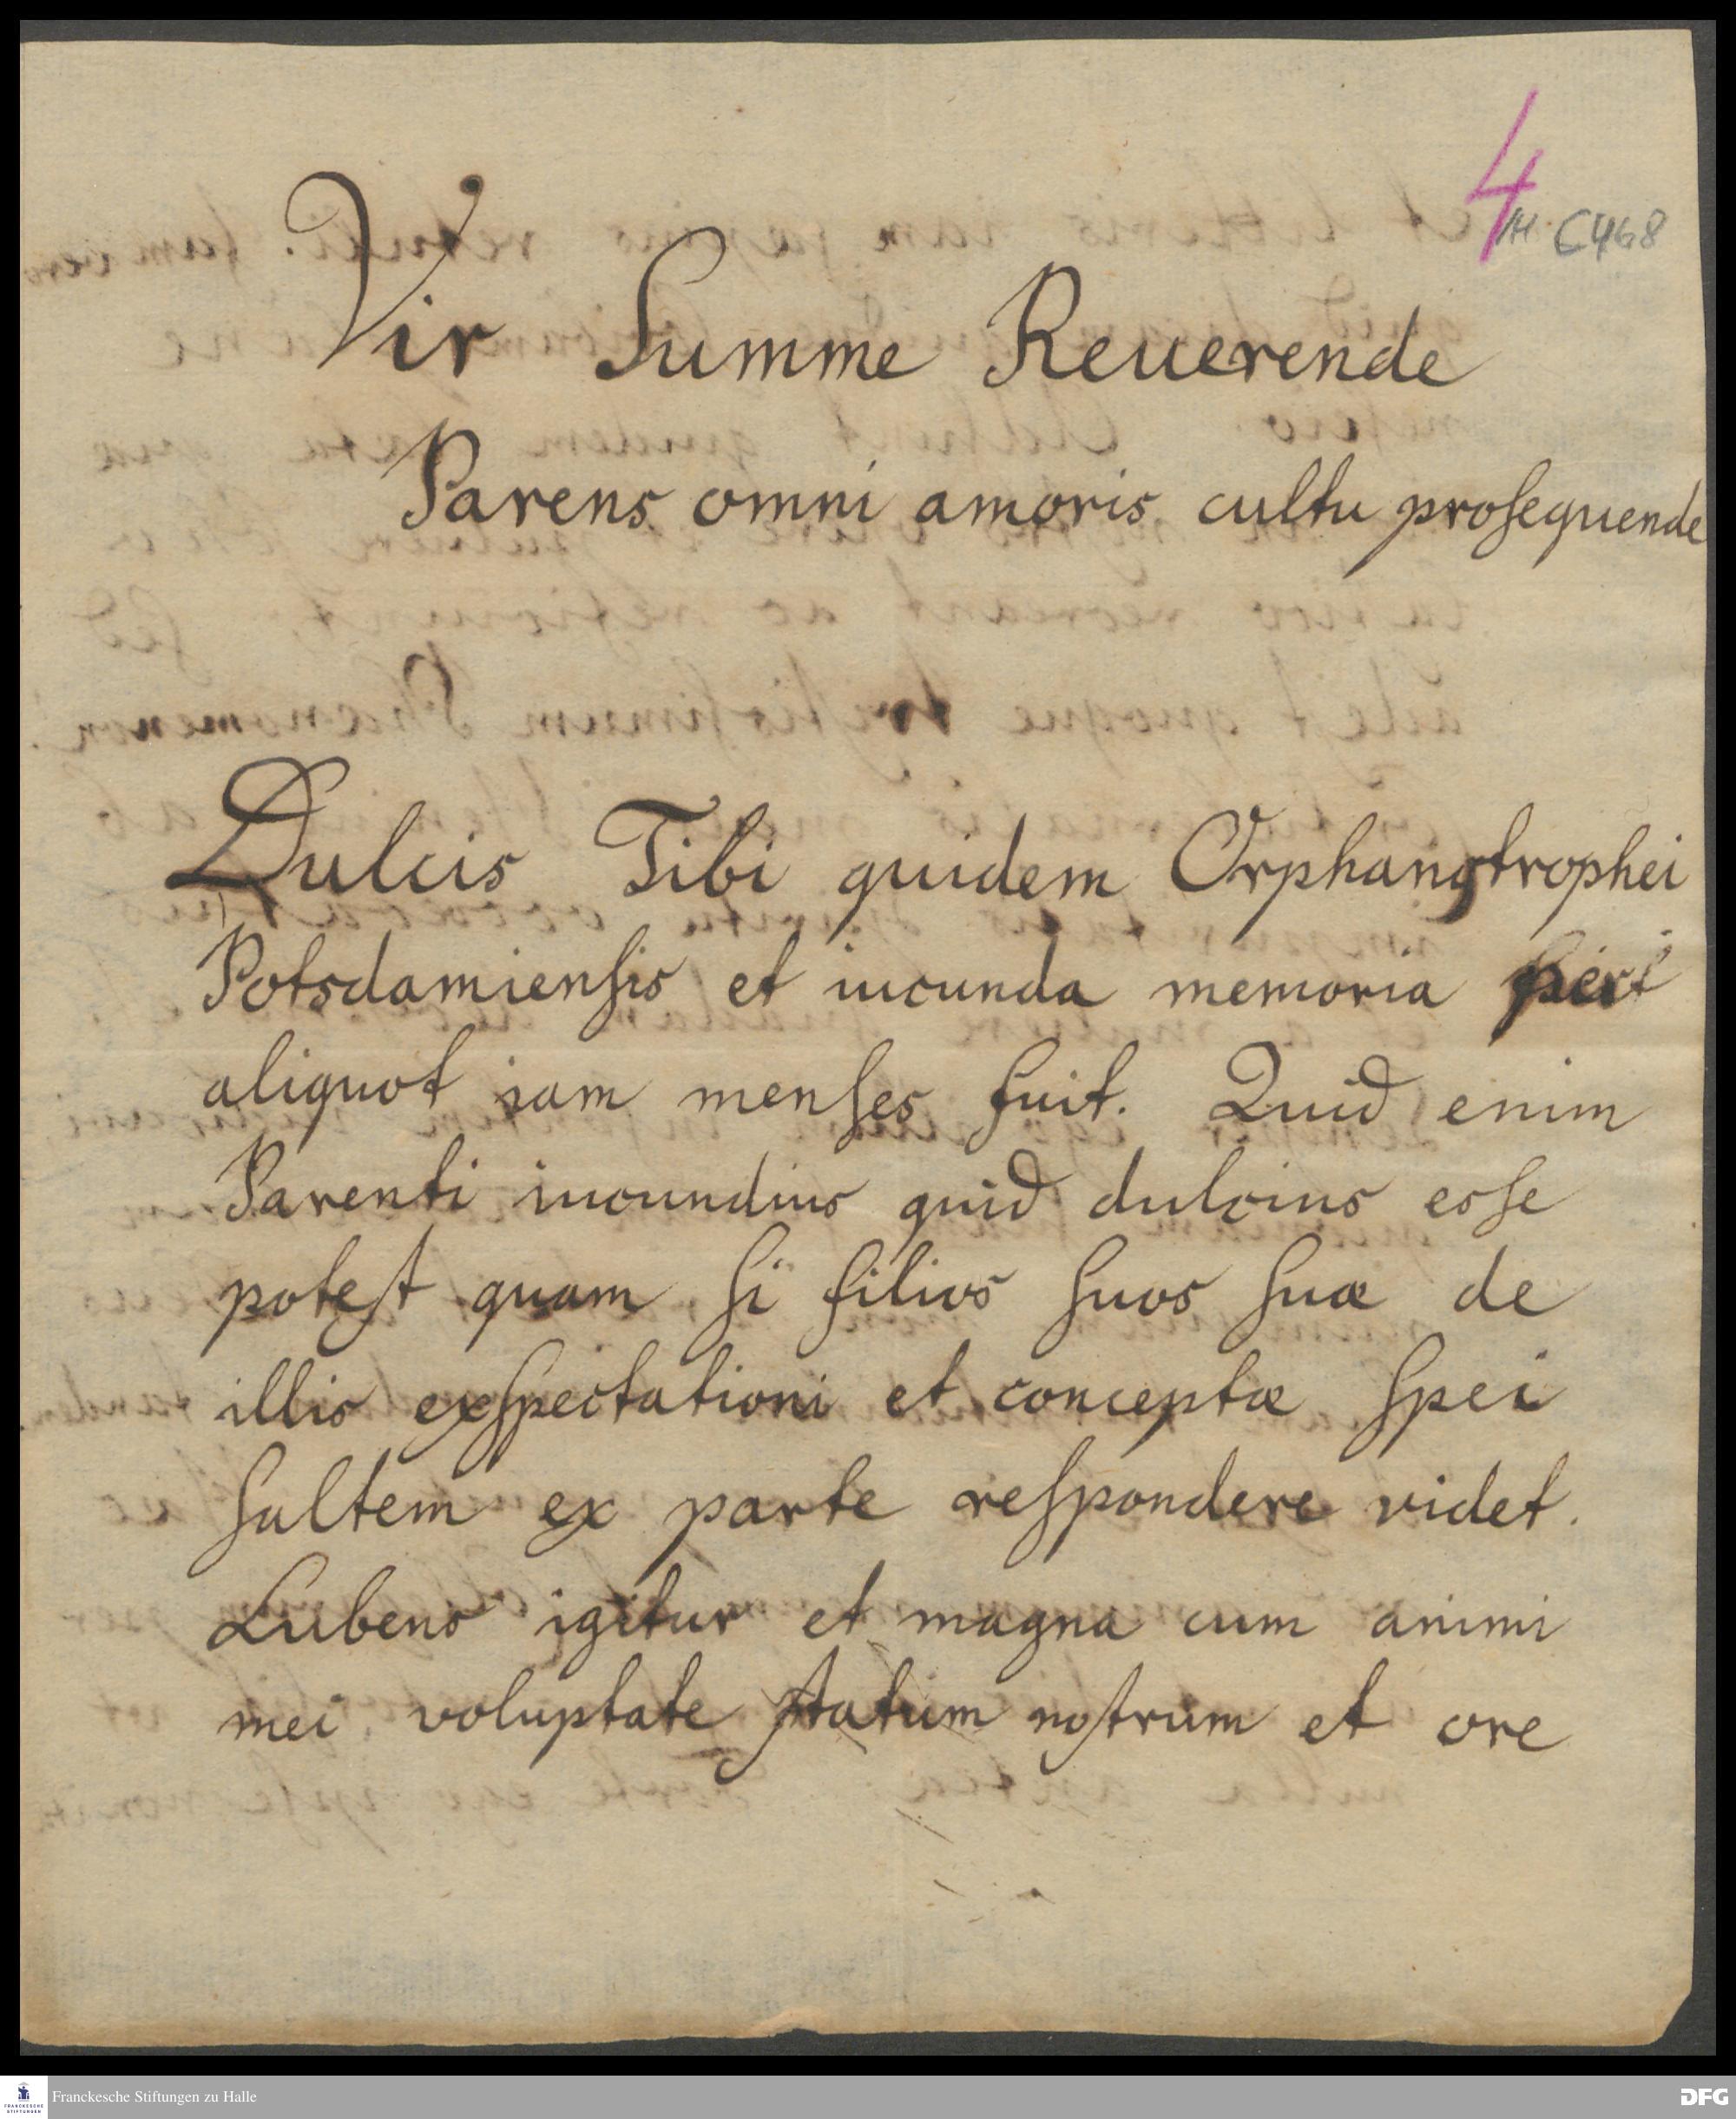 4
H C468
Vir Summe Reuerende
Parens omni amoris cultu proſequende
Dulcis Tibi quidem Orphanotrophei
Potsdamienſis et iucunda memoria per
aliquot iam menſes fuit. Quid enim
Parenti iucundius quid dulcius esſe
poteſt quam ſi filios ſuos ſuæ de
illis exſpectationi et conceptæ ſpei
ſaltem ex parte reſpondere videt.
Lubens igitur et magna cum animi
mei voluptate ſtatum noſtrum et ore
FRANCKESCHE
STIFTUNGEN
Franckesche Stiftungen zu Halle
DFG